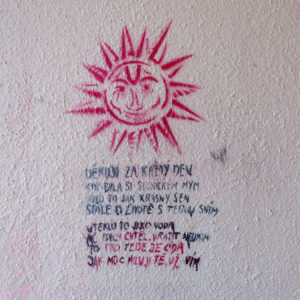 DĚKUJI ZA KAŽDÝ DEN
KDY BYLA SI SLUNÍČKEM MÝM
BYLO TO JAK KRÁSNÝ SEN
STÁLE O ŽIVOTĚ S TEBOU SNÍM
UTEKLO TO JAKO VODA
BYCH CHTĚL VRÁTIT
TO PRO TEBE JE ÓDA
JAK MOC MILUJI TĚ, UŽ VÍM